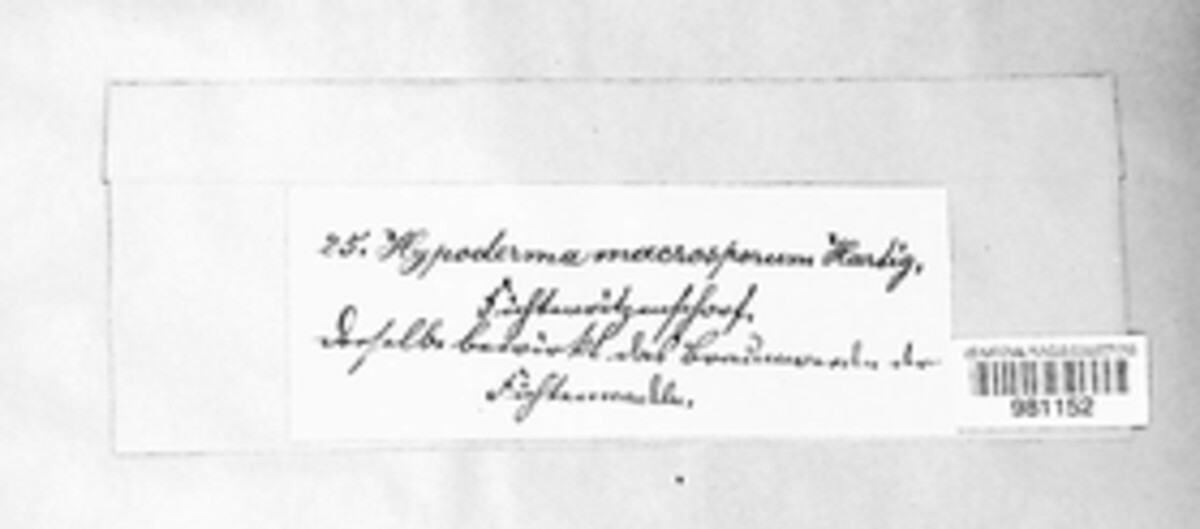 25. Hypoderma macrosporum Hartig.
Fichtenritzenschorf.
Derselbe bewirkt das Braunwerden der
Fichtennadeln.
981152